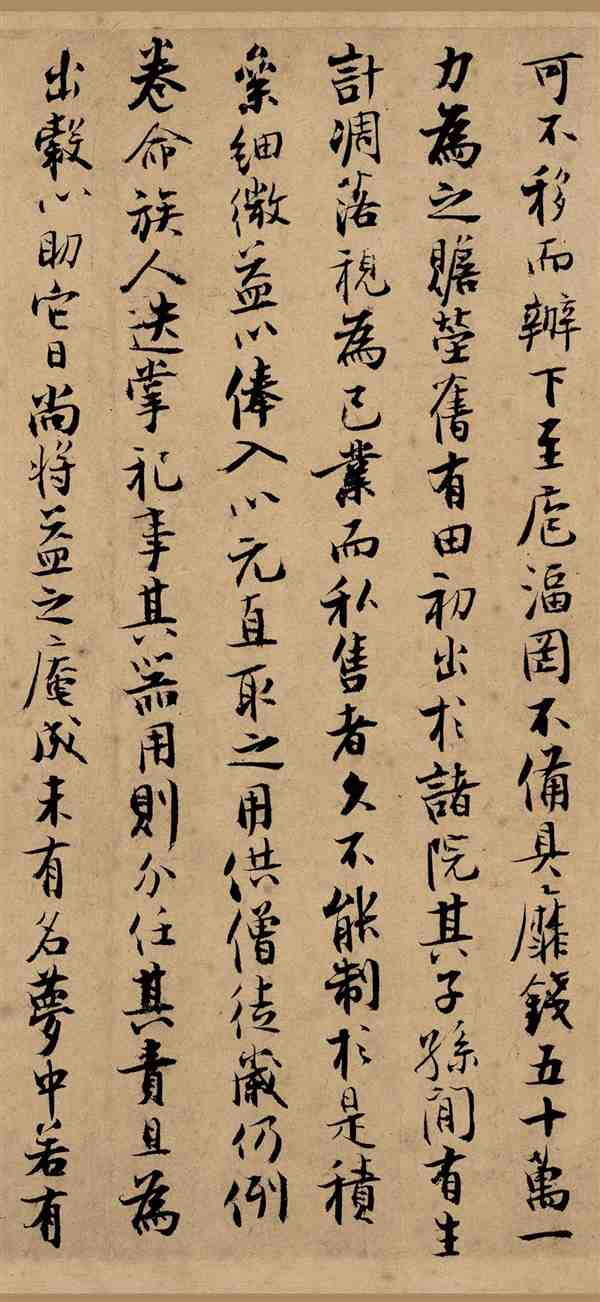 可不移而辦下至庖湢罔不備具靡錢五十萬一
力為之贍塋舊有田初出於諸院其子孫閒有生
計凋落視為己業而私售者久不能制於是積
絫細微益以俸入以元直取之用供僧徒歲仍例
卷命族人迭掌祀事其器用則分任其責且為
出穀以助它日尚將益之庵成未有名夢中若有